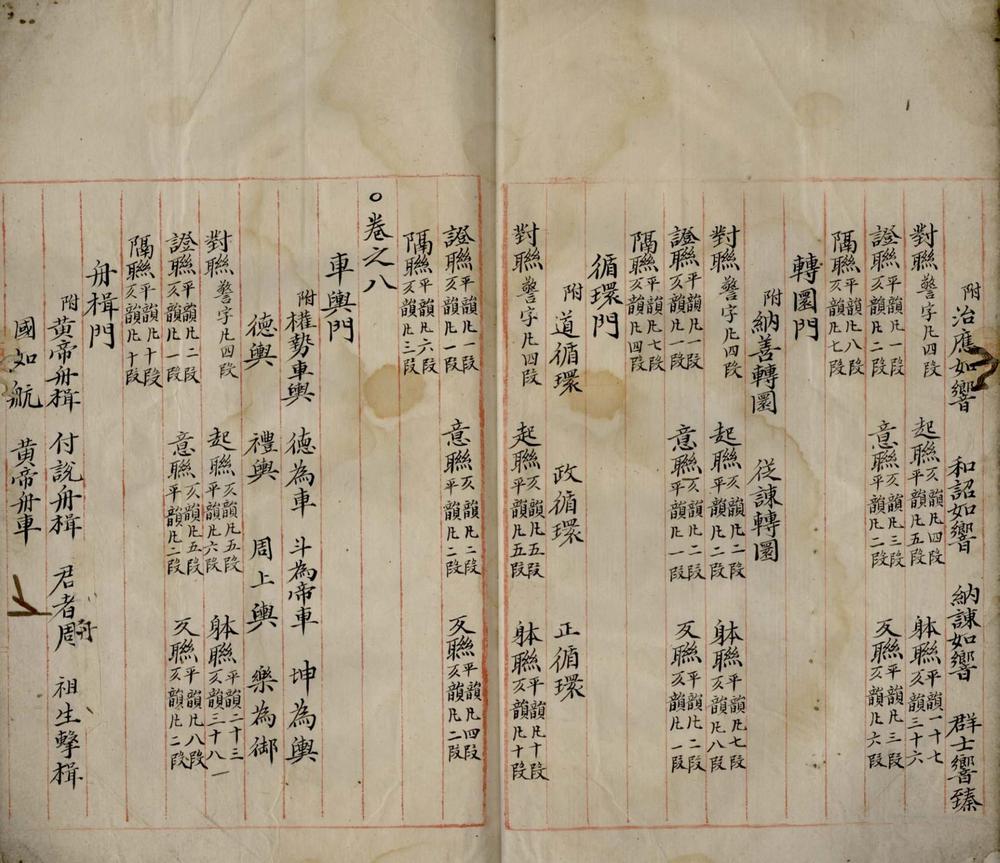 附 治應如響 和詔如響 納諫如響 群士響臻
對聯 警字凡四段 起聯 仄韻凡四段 平韻凡五段 躰聯 平韻一十七 仄韻三十六
證聯 平韻凡二段 仄韻凡一段 意聯 仄韻凡三段 平韻凡二段 反聯 平韻凡三段 仄韻凡六段
隔聯 平韻凡八段 仄韻凡七段
轉圜門
附 納善轉圜 從諫轉圜
對聯 警字凡四段 起聯 仄韻凡二段 平韻凡二段 躰聯 平韻凡七段 仄韻凡八段
證聯 平韻凡一段 仄韻凡一段 意聯 仄韻凡二段 平韻凡一段 反聯 平韻凡二段 仄韻凡一段
隔聯 平韻凡七段 仄韻凡四段
循環門
附 道循環 政循環 正循環
對聯 警字凡四段 起聯 仄韻凡五段 平韻凡五段 躰聯 平韻凡十段 仄韻凡十段
證聯 平韻凡一段 仄韻凡一段 意聯 仄韻凡二段 平韻凡二段 反聯 平韻凡四段 仄韻凡二段
隔聯 平韻凡六段 仄韻凡三段
○卷之八
車輿門
附 權勢車輿 德為車 斗為帝車 坤為輿
德輿 禮輿 周上輿 樂為御
對聯 警字凡四段 起聯 仄韻凡五段 平韻凡六段 躰聯 平韻二十三 仄韻三十八
證聯 平韻凡二段 仄韻凡一段 意聯 仄韻凡五段 平韻凡二段 反聯 平韻凡八段 仄韻凡二段
隔聯 平韻凡十段 仄韻凡十段
舟楫門
附 黃帝舟楫 付說舟楫 君者周舟 祖生擊楫
國如航 黃帝舟車